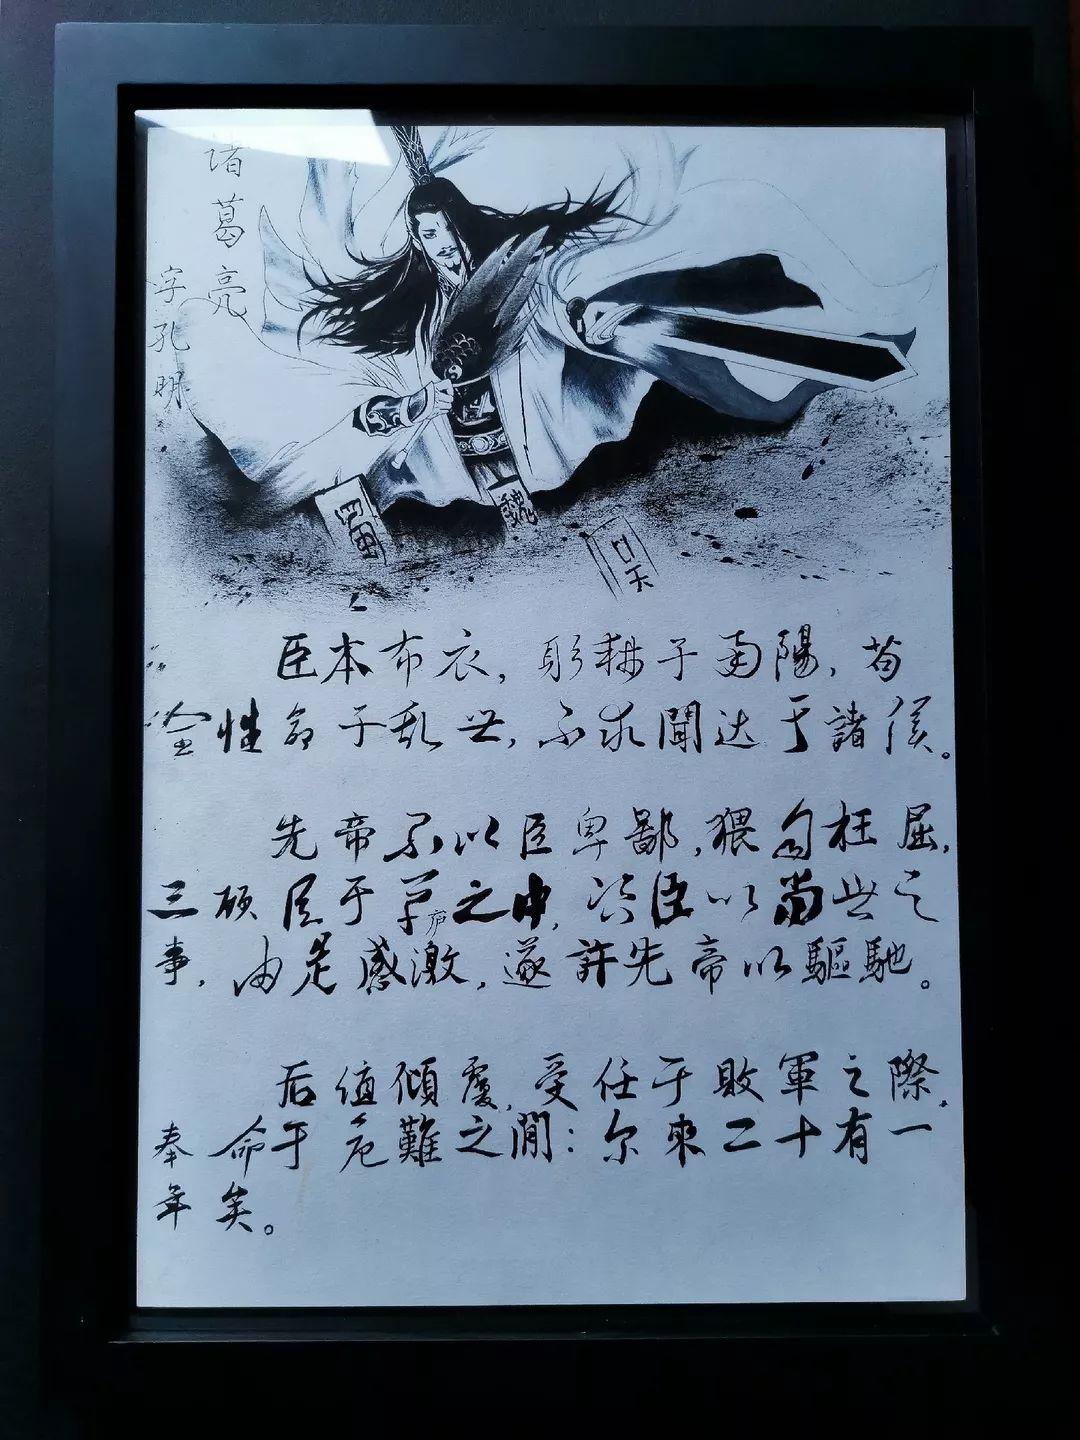 諸葛亮
字孔明
蜀
魏
吴
臣本布衣，躬耕于南陽，苟
全性命于乱世，不求聞达于諸侯。
先帝不以臣卑鄙，猥自枉屈，
三顾臣于草庐之中，咨臣以當世之
事，由是感激，遂許先帝以驅馳。
后值傾覆，受任于敗軍之際，
奉命于危難之間：尔來二十有一
年矣。